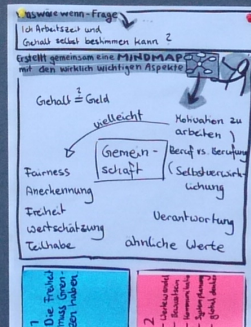 Was wäre wenn - Frage
Ich Arbeitszeit und
Gehalt selbst bestimmen kann ?
Erstellt gemeinsam eine MINDMAP
mit den wirklich wichtigen Aspekte
Gehalt ≟ Geld
vielleicht
Motivaten zu
arbeiten
Beruf vs. Berufung
(Selbstverwirk-
lichung
Gemein-
schaft
Fairness
Anerkennung
Freiheit
Wertschätzung
Teilhabe
Verantwortung
ähnliche Werte
1
Die Freiheit
muss Gren-
zen haben
2
- Wertewandel
- Bewusstsein
- Kommunikation